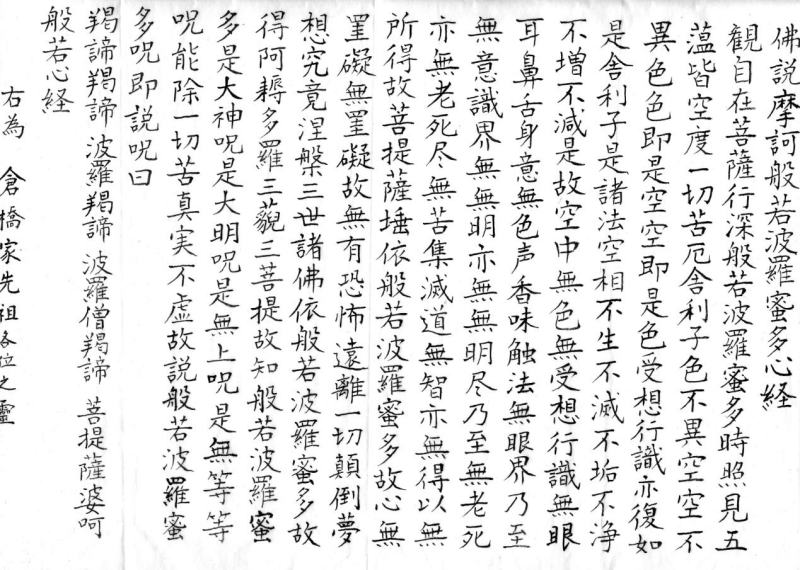 佛説摩訶般若波羅蜜多心経
觀自在菩薩行深般若波羅蜜多時照見五
薀皆空度一切苦厄舎利子色不異空空不
異色色即是空空即是色受想行識亦復如
是舎利子是諸法空相不生不滅不垢不浄
不増不減是故空中無色無受想行識無眼
耳鼻舌身意無色声香味触法無眼界乃至
無意識界無無明亦無無明尽乃至無老死
亦無老死尽無苦集滅道無智亦無得以無
所得故菩提薩埵依般若波羅蜜多故心無
罣礙無罣礙故無有恐怖遠離一切顛倒夢
想究竟涅槃三世諸佛依般若波羅蜜多故
得阿耨多羅三藐三菩提故知般若波羅蜜
多是大神呪是大明呪是無上呪是無等等
呪能除一切苦真実不虚故説般若波羅蜜
多呪即説呪曰
羯諦羯諦 波羅羯諦 波羅僧羯諦 菩提薩婆呵
般若心経
右為 倉橋家先祖各位之霊